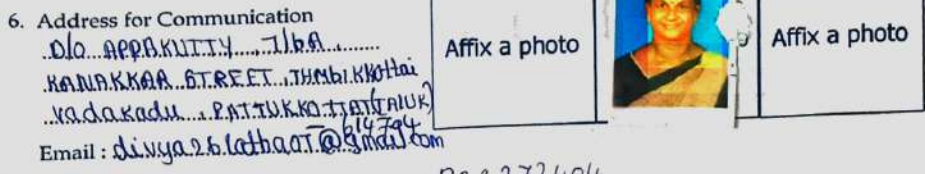 6. Address for Communication
D/O APPAKUTTY, 7/6A
KANAKKAR STREET, THMbikkottai
Vadakadu, PATTUKKOTTAI (TALUK)
614794
Email : divya26.lathaaT@gmail.com
Affix a photo
Affix a photo